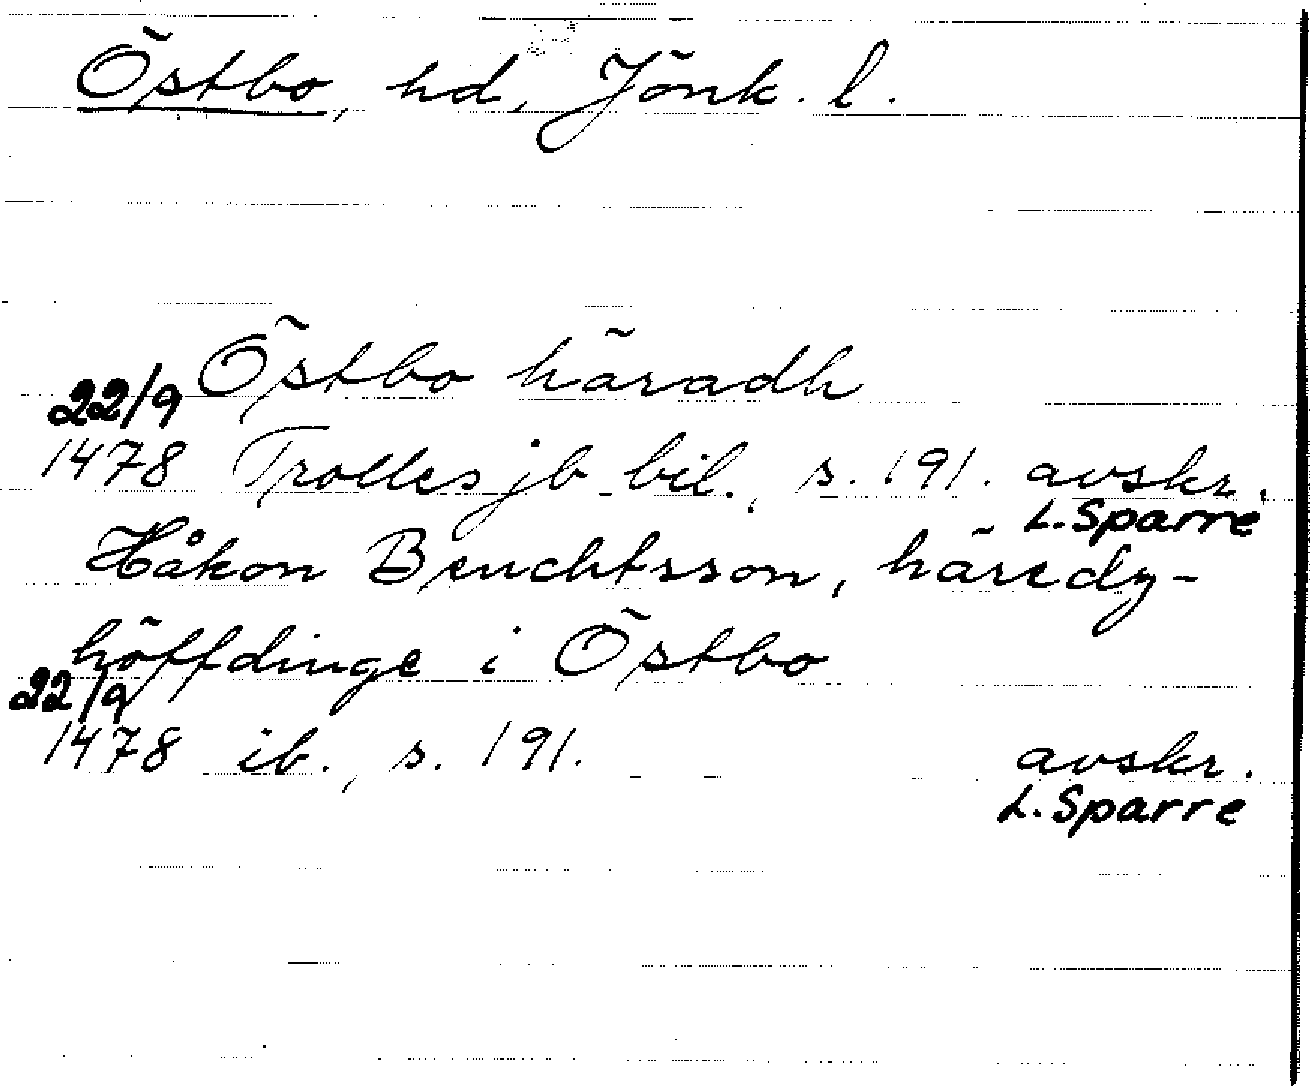 Östbo, hd, Jönk. l.
Östbo häradh
22/9
1478 Trolles jb bil., s. 191. avskr.
L. Sparre
Håkon Benchtsson, häredz-
höffdinge i Östbo
22/9
1478 ib., s. 191. avskr.
L. Sparre